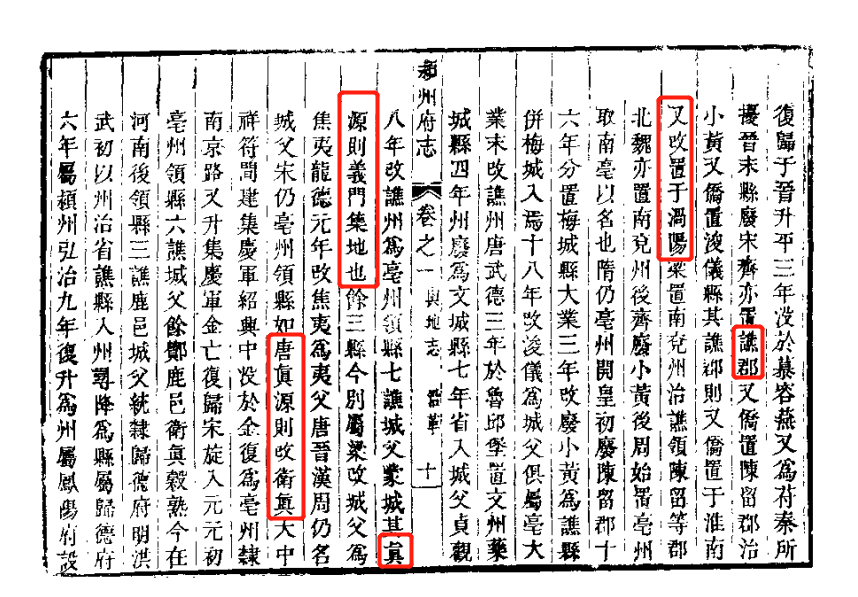 復歸于晉升平三年沒於慕容燕又爲苻秦所
擾晉末縣廢宋齊亦置譙郡又僑置陳留郡治
小黃又僑置浚儀縣其譙郡則又僑置于淮南
又改置于渦陽梁置南兗州治譙領陳留等郡
北魏亦置南兗州後齊廢小黃後周始置亳州
取南亳以名也隋仍亳州開皇初廢陳留郡十
六年分置梅城縣大業三年改廢小黃爲譙縣
併梅城入焉十八年改浚儀爲城父俱屬亳大
業末改譙州唐武德三年於魯邱堡置文州藥
城縣四年州廢爲文城縣七年省入城父貞觀
潁州府志 卷之一 輿地志 沿革 十
八年改譙州爲亳州領縣七譙城父蒙城其眞
源則義門集地也餘三縣今別屬梁改城父爲
焦夷龍德元年改焦夷爲夷父唐晉漢周仍名
城父宋仍亳州領縣如唐眞源則改衛眞大中
祥符間建集慶軍紹興中沒於金復爲亳州隸
南京路又升集慶軍金亡復歸宋旋入元元初
亳州領縣六譙城父餘酇鹿邑衛眞穀熟今在
河南後領縣三譙鹿邑城父統隸歸德府明洪
武初以州治省譙縣入州尋降爲縣屬歸德府
六年屬潁州弘治九年復升爲州屬鳳陽府設